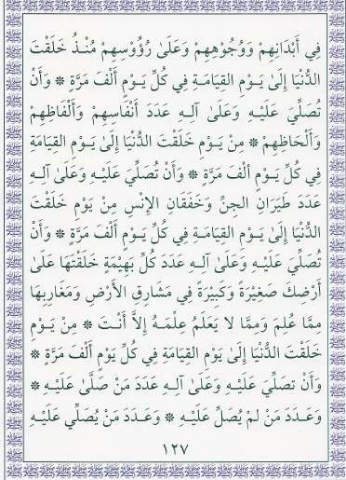 فِي أَبْدَانِهِمْ وَوُجُوهِهِمْ وَعَلَىٰ رُؤُوسِهِمْ مُنْذُ خَلَقْتَ
الدُّنْيَا إِلَىٰ يَوْمِ القِيَامَةِ فِي كُلِّ يَوْمٍ أَلْفَ مَرَّةٍ ۞ وَأَنْ
تُصَلِّيَ عَلَيْهِ وَعَلَىٰ آلِهِ عَدَدَ أَنْفَاسِهِمْ وَأَلْفَاظِهِمْ
وَأَلْحَاظِهِمْ ۞ مِنْ يَوْمِ خَلَقْتَ الدُّنْيَا إِلَىٰ يَوْمِ القِيَامَةِ
فِي كُلِّ يَوْمٍ أَلْفَ مَرَّةٍ ۞ وَأَنْ تُصَلِّيَ عَلَيْهِ وَعَلَىٰ آلِهِ
عَدَدَ طَيَرَانِ الجِنِّ وَخَفَقَانِ الإِنْسِ مِنْ يَوْمِ خَلَقْتَ
الدُّنْيَا إِلَىٰ يَوْمِ القِيَامَةِ فِي كُلِّ يَوْمٍ أَلْفَ مَرَّةٍ ۞ وَأَنْ
تُصَلِّيَ عَلَيْهِ وَعَلَىٰ آلِهِ عَدَدَ كُلِّ بَهِيْمَةٍ خَلَقْتَهَا عَلَىٰ
أَرْضِكَ صَغِيْرَةً وَكَبِيْرَةً فِي مَشَارِقِ الأَرْضِ وَمَغَارِبِهَا
مِمَّا عُلِمَ وَمِمَّا لَا يَعْلَمُ عِلْمَهُ إِلَّا أَنْتَ ۞ مِنْ يَوْمِ
خَلَقْتَ الدُّنْيَا إِلَىٰ يَوْمِ القِيَامَةِ فِي كُلِّ يَوْمٍ أَلْفَ مَرَّةٍ ۞
وَأَنْ تُصَلِّيَ عَلَيْهِ وَعَلَىٰ آلِهِ عَدَدَ مَنْ صَلَّىٰ عَلَيْهِ ۞
وَعَدَدَ مَنْ لَمْ يُصَلِّ عَلَيْهِ ۞ وَعَدَدَ مَنْ يُصَلِّي عَلَيْهِ
١٢٧